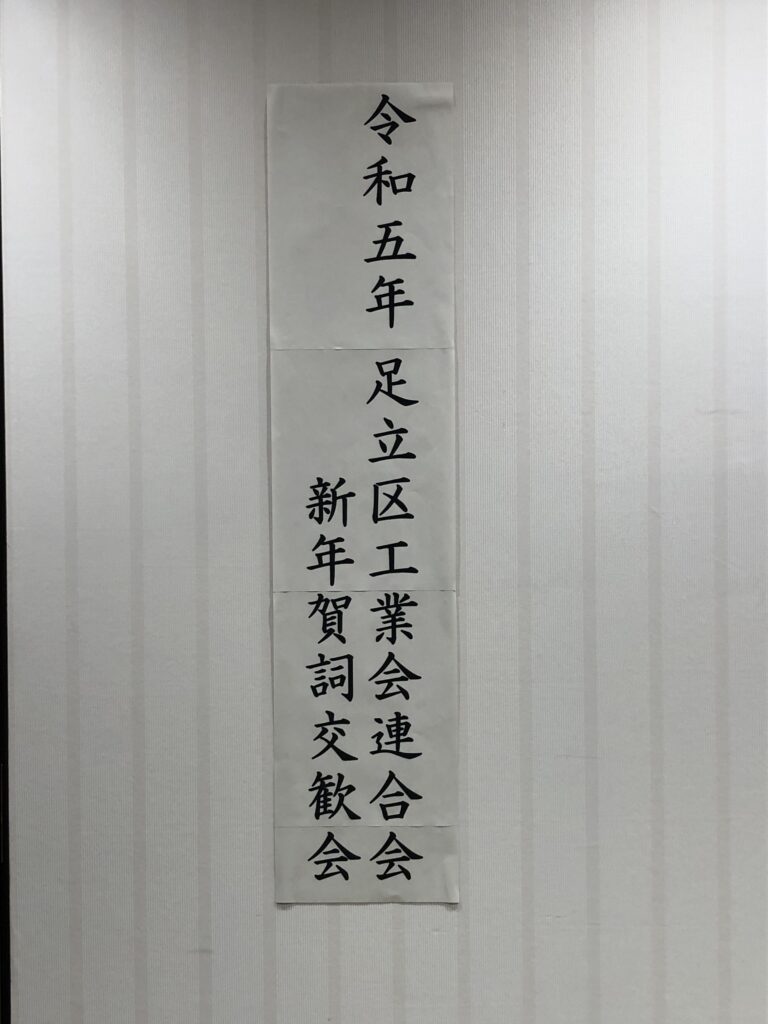 令和五年 足立区工業会連合会
新年賀詞交歓会